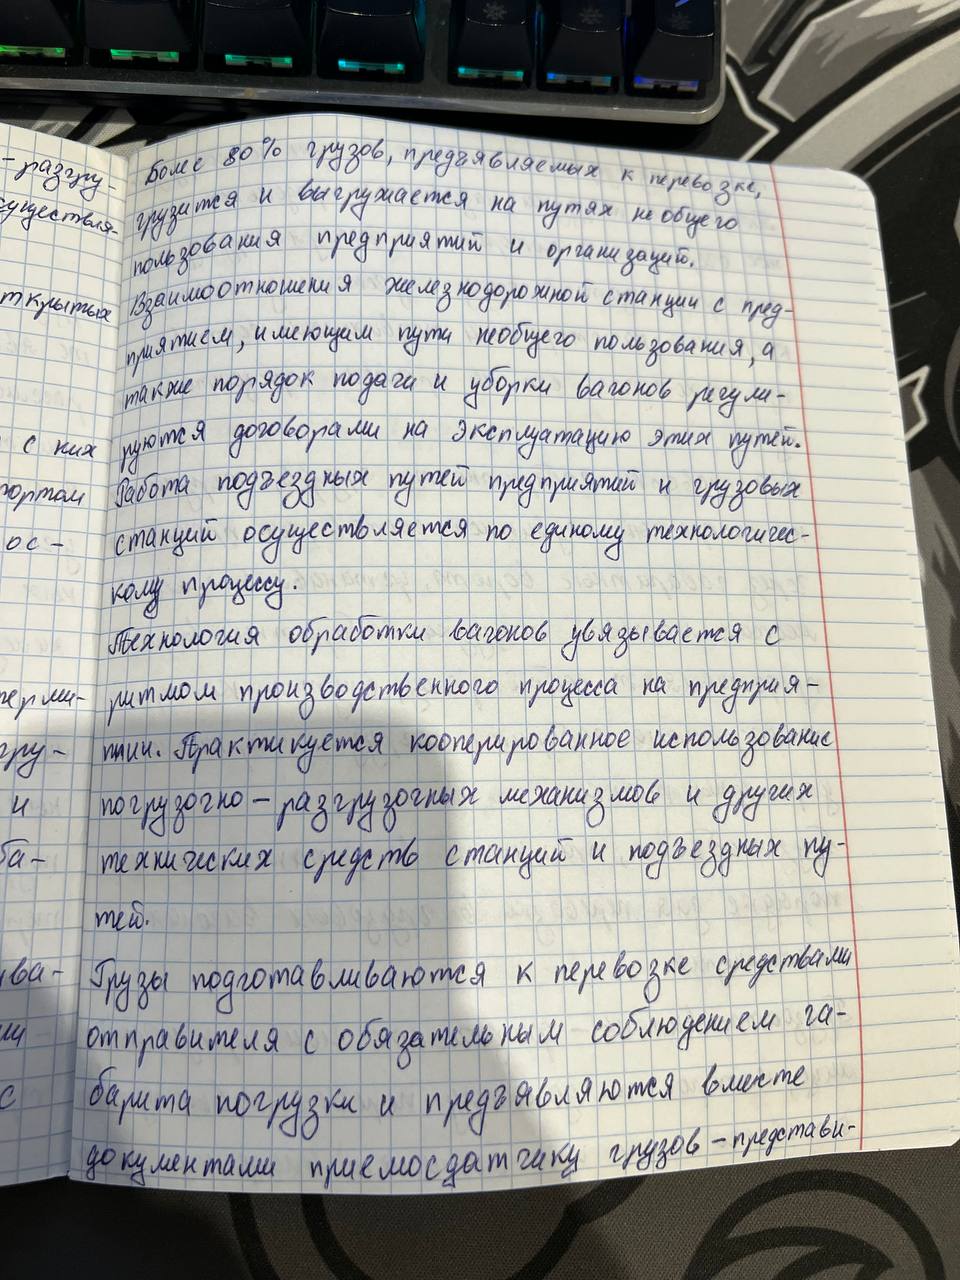 - разгру-
существля-
ткрытых
с них
портом
ос-
ерми-
гру-
и
ба-
ива-
ии
с
Более 80% грузов, предъявляемых к перевозке,
грузится и выгружается на путях необщего
пользования предприятий и организаций.
Взаимоотношения железнодорожной станции с пред-
приятием, имеющим пути необщего пользования, а
также порядок подачи и уборки вагонов регули-
руются договорами на эксплуатацию этих путей.
Работа подъездных путей предприятий и грузовых
станций осуществляется по единому технологичес-
кому процессу.
Технология обработки вагонов увязывается с
ритмом производственного процесса на предприя-
тии. Практикуется кооперированное использование
погрузочно - разгрузочных механизмов и других
технических средств станций и подъездных пу-
тей.
Грузы подготавливаются к перевозке средствами
отправителя с обязательным соблюдением га-
барита погрузки и предъявляются вместе
документами приемосдатчику грузов - представи-